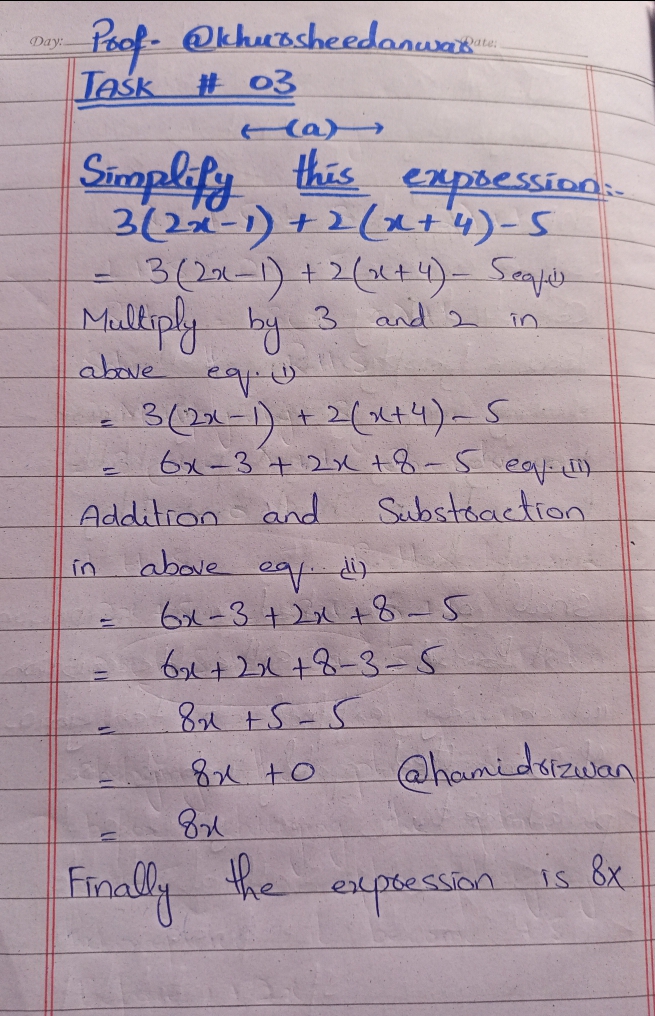 Day: Prof. @khursheedanwar Date:
TASK # 03
←(a)→
Simplify this expression:-
3(2x-1) + 2(x+4)-5
= 3(2x-1) + 2(x+4)- 5 eq.(i)
Multiply by 3 and 2 in
above eq.(i)
= 3(2x-1) + 2(x+4)-5
= 6x-3 + 2x +8-5 eq.(ii)
Addition and Substraction
in above eq. (ii)
= 6x-3+2x+8-5
= 6x+2x+8-3-5
= 8x +5-5
= 8x +0 @hamidrizwan
= 8x
Finally the expression is 8x